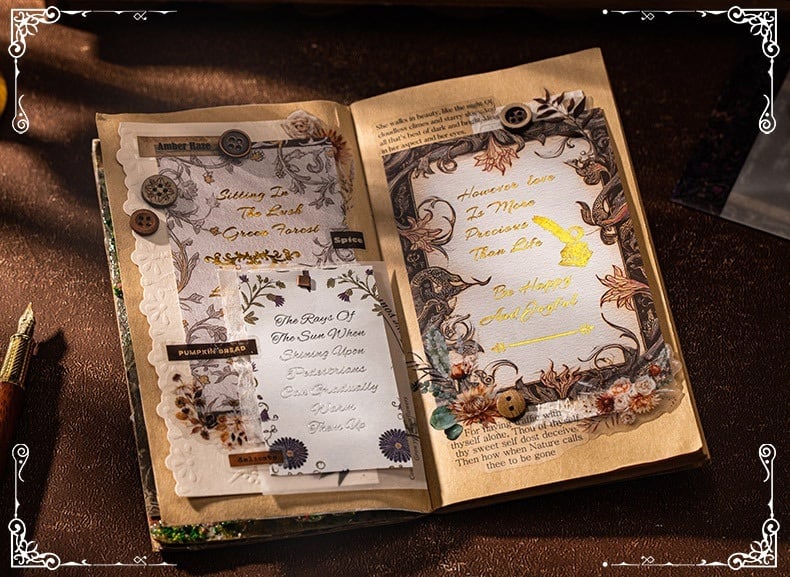 Amber Haze
Sitting In
The Lush
Green Forest
Spice
PUMPKIN BREAD
The Rays Of
The Sun When
Shining Upon
Pedestrians
Can Gradually
Warm
Them Up
delicate
She walks in beauty, like the night Of
cloudless climes and starry
all that's best of dark and
at her aspect and her eyes.
However Love
Is More
Precious
Than Life
Be Happy
And Joyful
For having traffic with
thyself alone, Thou of thyself
thy sweet self dost deceive.
Then how when Nature calls
thee to be gone